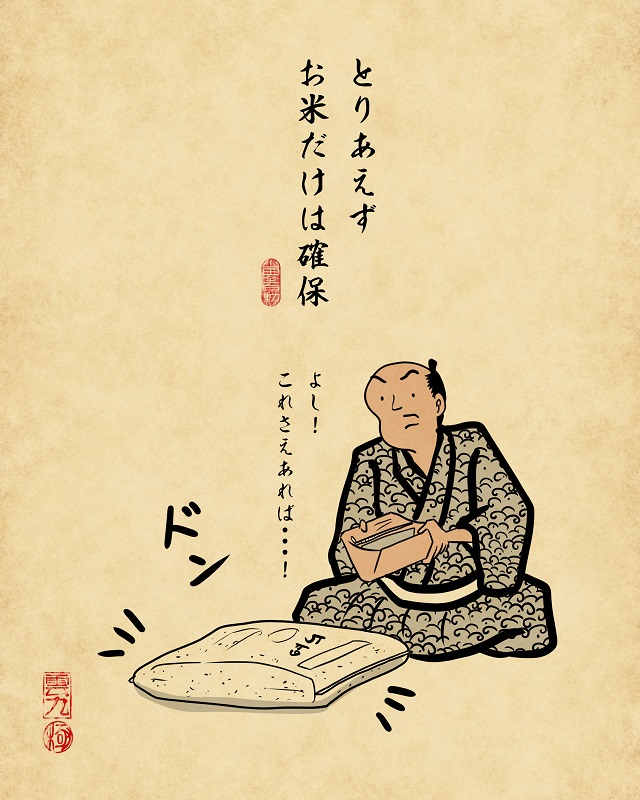 とりあえず
お米だけは確保
よし!
これさえあれば・・・!
ドン
5kg